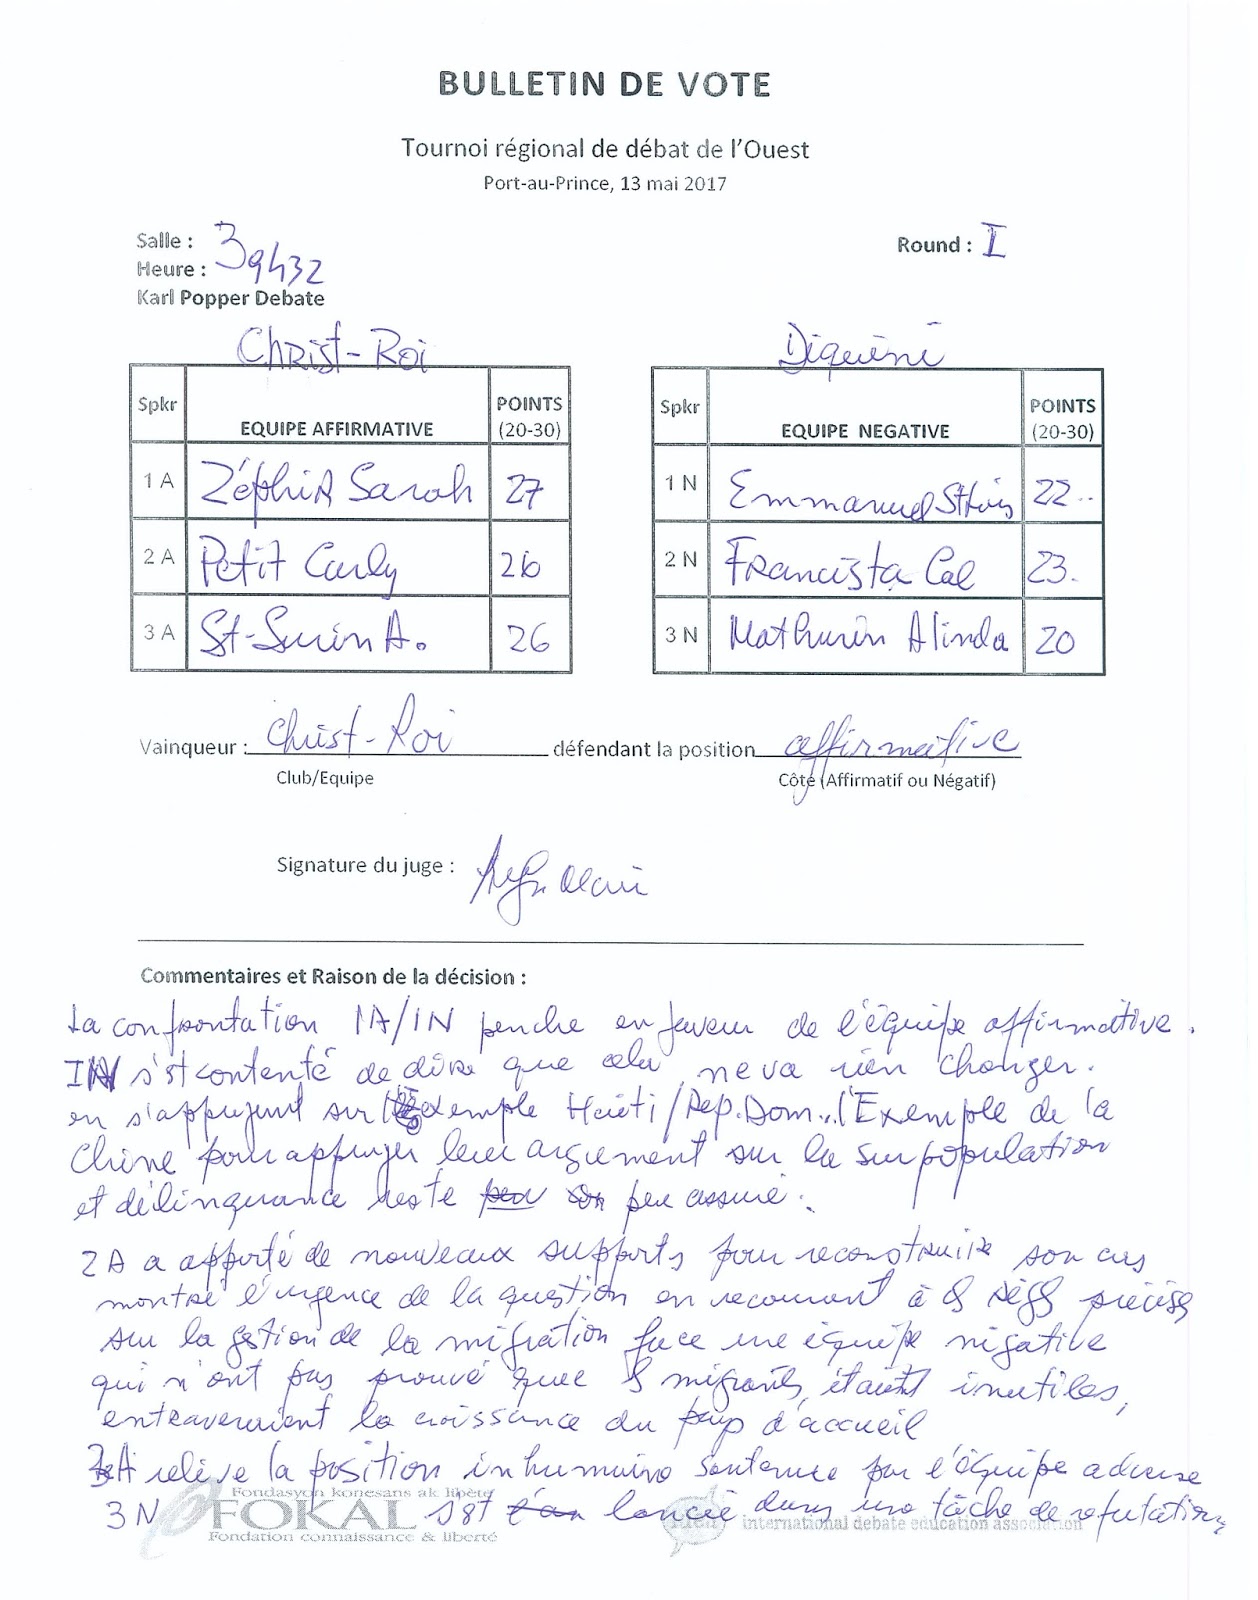 BULLETIN DE VOTE
Tournoi régional de débat de l'Ouest
Port-au-Prince, 13 mai 2017
Salle : 3
Round : I
Heure : 9h32
Karl Popper Debate
Christ-Roi
Diquini
Spkr EQUIPE AFFIRMATIVE POINTS (20-30)
Spkr EQUIPE NEGATIVE POINTS (20-30)
1 A Zéphir Sarah 27
1 N Emmanuel 22
2 A Petit Carly 26
2 N Francista Cal 23.
3 A St-Surin A. 26
3 N Mathurin Alinda 20
Vainqueur : Christ-Roi défendant la position affirmative
Club/Equipe Côté (Affirmatif ou Négatif)
Signature du juge :
Commentaires et Raison de la décision :
La confrontation 1A/1N penche en faveur de l'équipe affirmative.
1N s'st contenté de dire que cela ne va rien changer.
en s'appuyant sur l'exemple Haïti/Rep.Dom.. l'Exemple de la
Chine pour appuyer leur argument sur la surpopulation
et délinquance reste peu assuré.
2A a apporté de nouveaux supports pour reconstruire son cas
montré l'urgence de la question en recourant à précises
sur la gstion de la migration face une équipe négative
qui n'ont pas prouvé que migrants étaient inutiles,
entraveraient la croissance du pays d'accueil
3A relève la position inhumaine soutenue par l'équipe adverse
3N s'st lancée dans une tâche de refutation
Fondasyon konesans ak libète
FOKAL
Fondation connaissance & liberté
idea
international debate education association